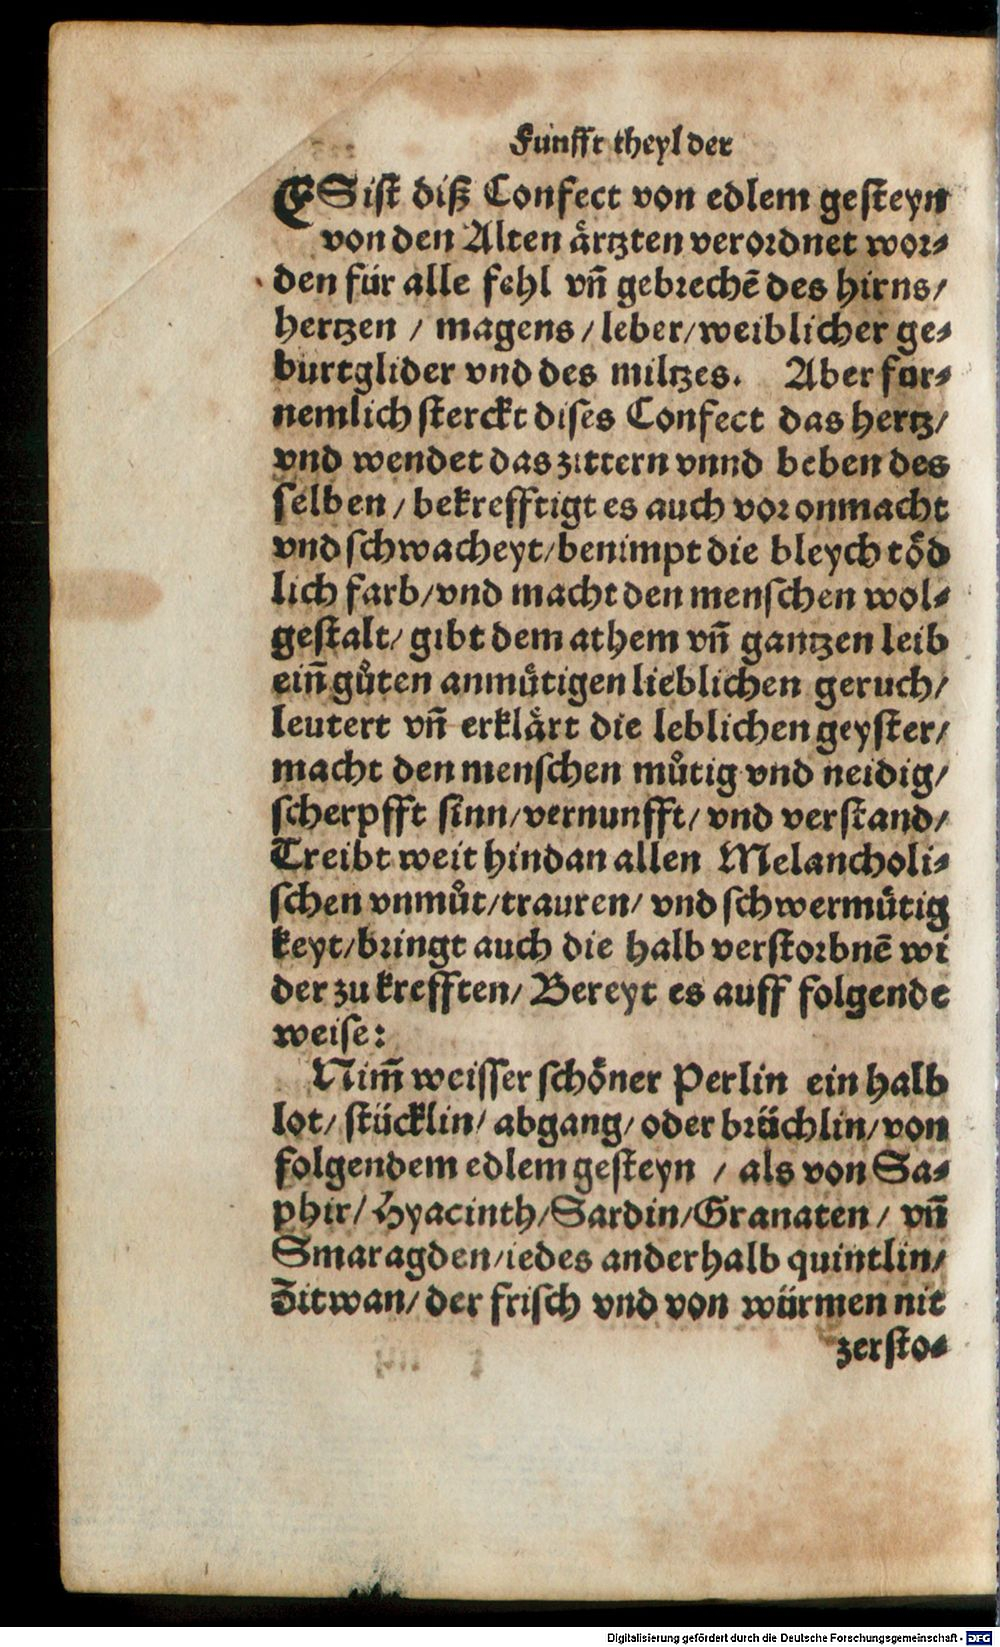 Fünfft theyl der
ES ist diß Confect von edlem gesteyn
von den Alten ärtzten verordnet wor⸗
den für alle fehl vñ gebrechẽ des hirns/
hertzen / magens / leber/ weiblicher ge⸗
burtglider vnd des miltzes. Aber für⸗
nemlich sterckt dises Confect das hertz/
vnd wendet das zittern vnnd beben des
selben / bekrefftigt es auch vor onmacht
vnd schwacheyt/ benimpt die bleych töd
lich farb/ vnd macht den menschen wol⸗
gestalt/ gibt dem athem vñ gantzen leib
eiñ gůten anmůtigen lieblichen geruch/
leutert vñ erklärt die leblichen geyster/
macht den menschen můtig vnd neidig/
scherpfft sinn/ vernunfft/ vnd verstand/
Treibt weit hindan allen Melancholi⸗
schen vnmůt/ trauren/ vnd schwermůtig
keyt/ bringt auch die halb verstorbnẽ wi
der zu krefften/ Bereyt es auff folgende
weise:
Nim̃ weisser schöner Perlin ein halb
lot/ stücklin/ abgang/ oder brüchlin/ von
folgendem edlem gesteyn / als von Sa⸗
phir/ Hyacinth/ Sardin/ Granaten / vñ
Smaragden/ iedes anderhalb quintlin/
Zitwan/ der frisch vnd von würmen nit
zersto⸗
Digitalisierung gefördert durch die Deutsche Forschungsgemeinschaft - DFG